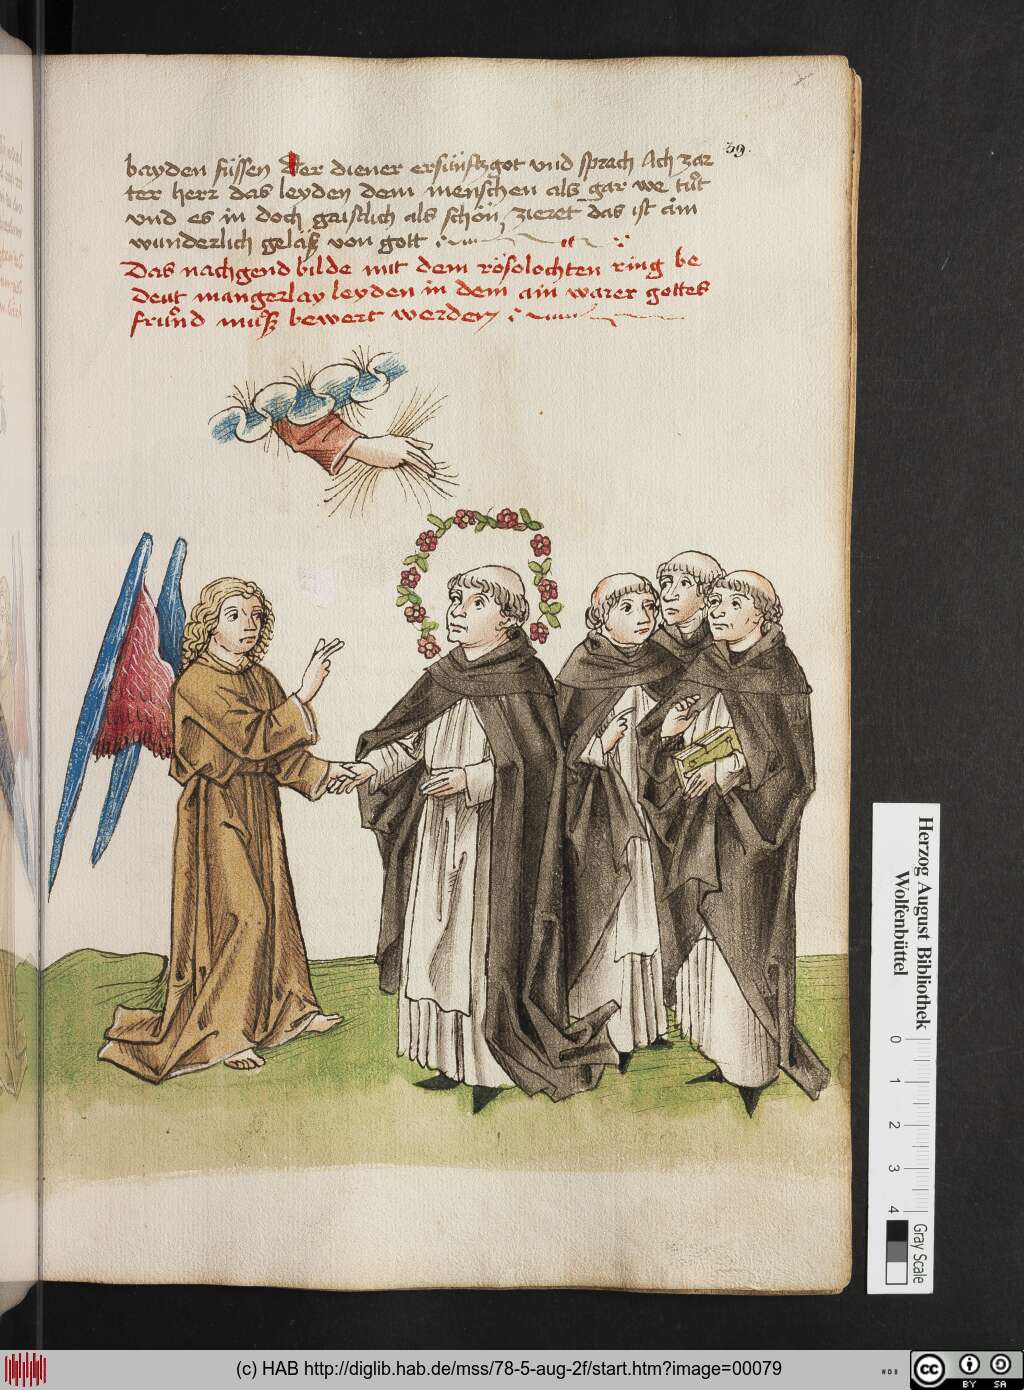 39.
bayden füssen Der diener ersüufftzgot vnd sprach Ach zar
ter herr das leyden dem menschen als gar we tůt
vnd es in doch gaistlich als schön zieret das ist ain
wunderlich geläß von gott
Das nachgend bilde mit dem rösolochten ring be
deut mangerlay leyden in dem ain warer gottes
frůnd můß bewert werden
Herzog August Bibliothek
Wolfenbüttel
0 1 2 3 4
Gray Scale
(c) HAB http://diglib.hab.de/mss/78-5-aug-2f/start.htm?image=00079
WDB
cc
BY SA